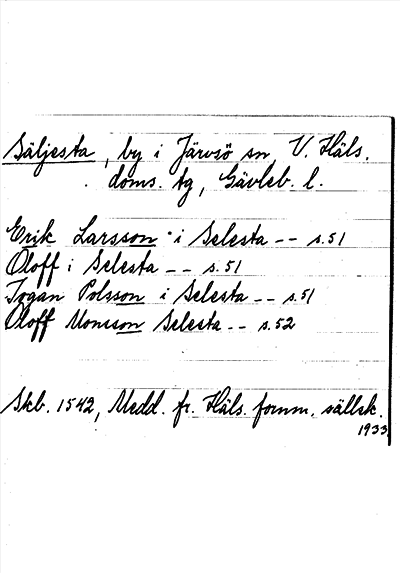 Säljesta, by i Järvsö sn V. Häls.
doms. tg, Gävleb. l.
Erik Larsson i Selesta -- s.51
Oloff i Selesta -- s.51
Jogan Polsson i Selesta -- s.51
Oloff Monsson Selesta -- s.52
Skb. 1542, Medd. fr. Häls. fornm. sällsk.
1933.